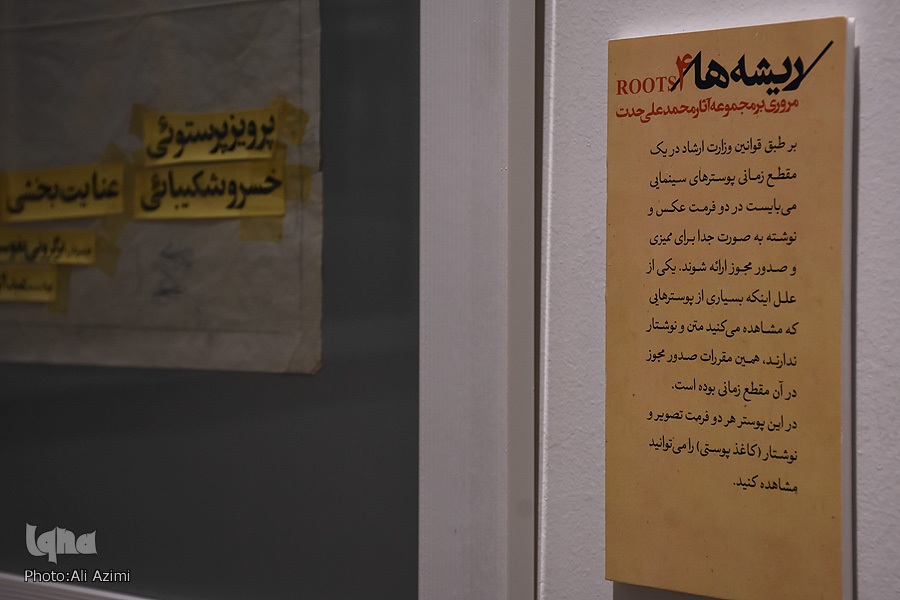 ریشه‌ها ۴
ROOTS
مروری بر مجموعه آثار محمدعلی حدت
بر طبق قوانین وزارت ارشاد در یک
مقطع زمانی پوسترهای سینمایی
می‌بایست در دو فرمت عکس و
نوشته به صورت جدا برای ممیزی
و صدور مجوز ارائه شوند. یکی از
علل اینکه بسیاری از پوسترهایی
که مشاهده می‌کنید متن و نوشتار
ندارند، همین مقررات صدور مجوز
در آن مقطع زمانی بوده است.
در این پوستر هر دو فرمت تصویر و
نوشتار (کاغذ پوستی) را می‌توانید
مشاهده کنید.
پرویز پرستوئی
خسرو شکیبائی
عنایت بخشی
iqna
Photo:Ali Azimi